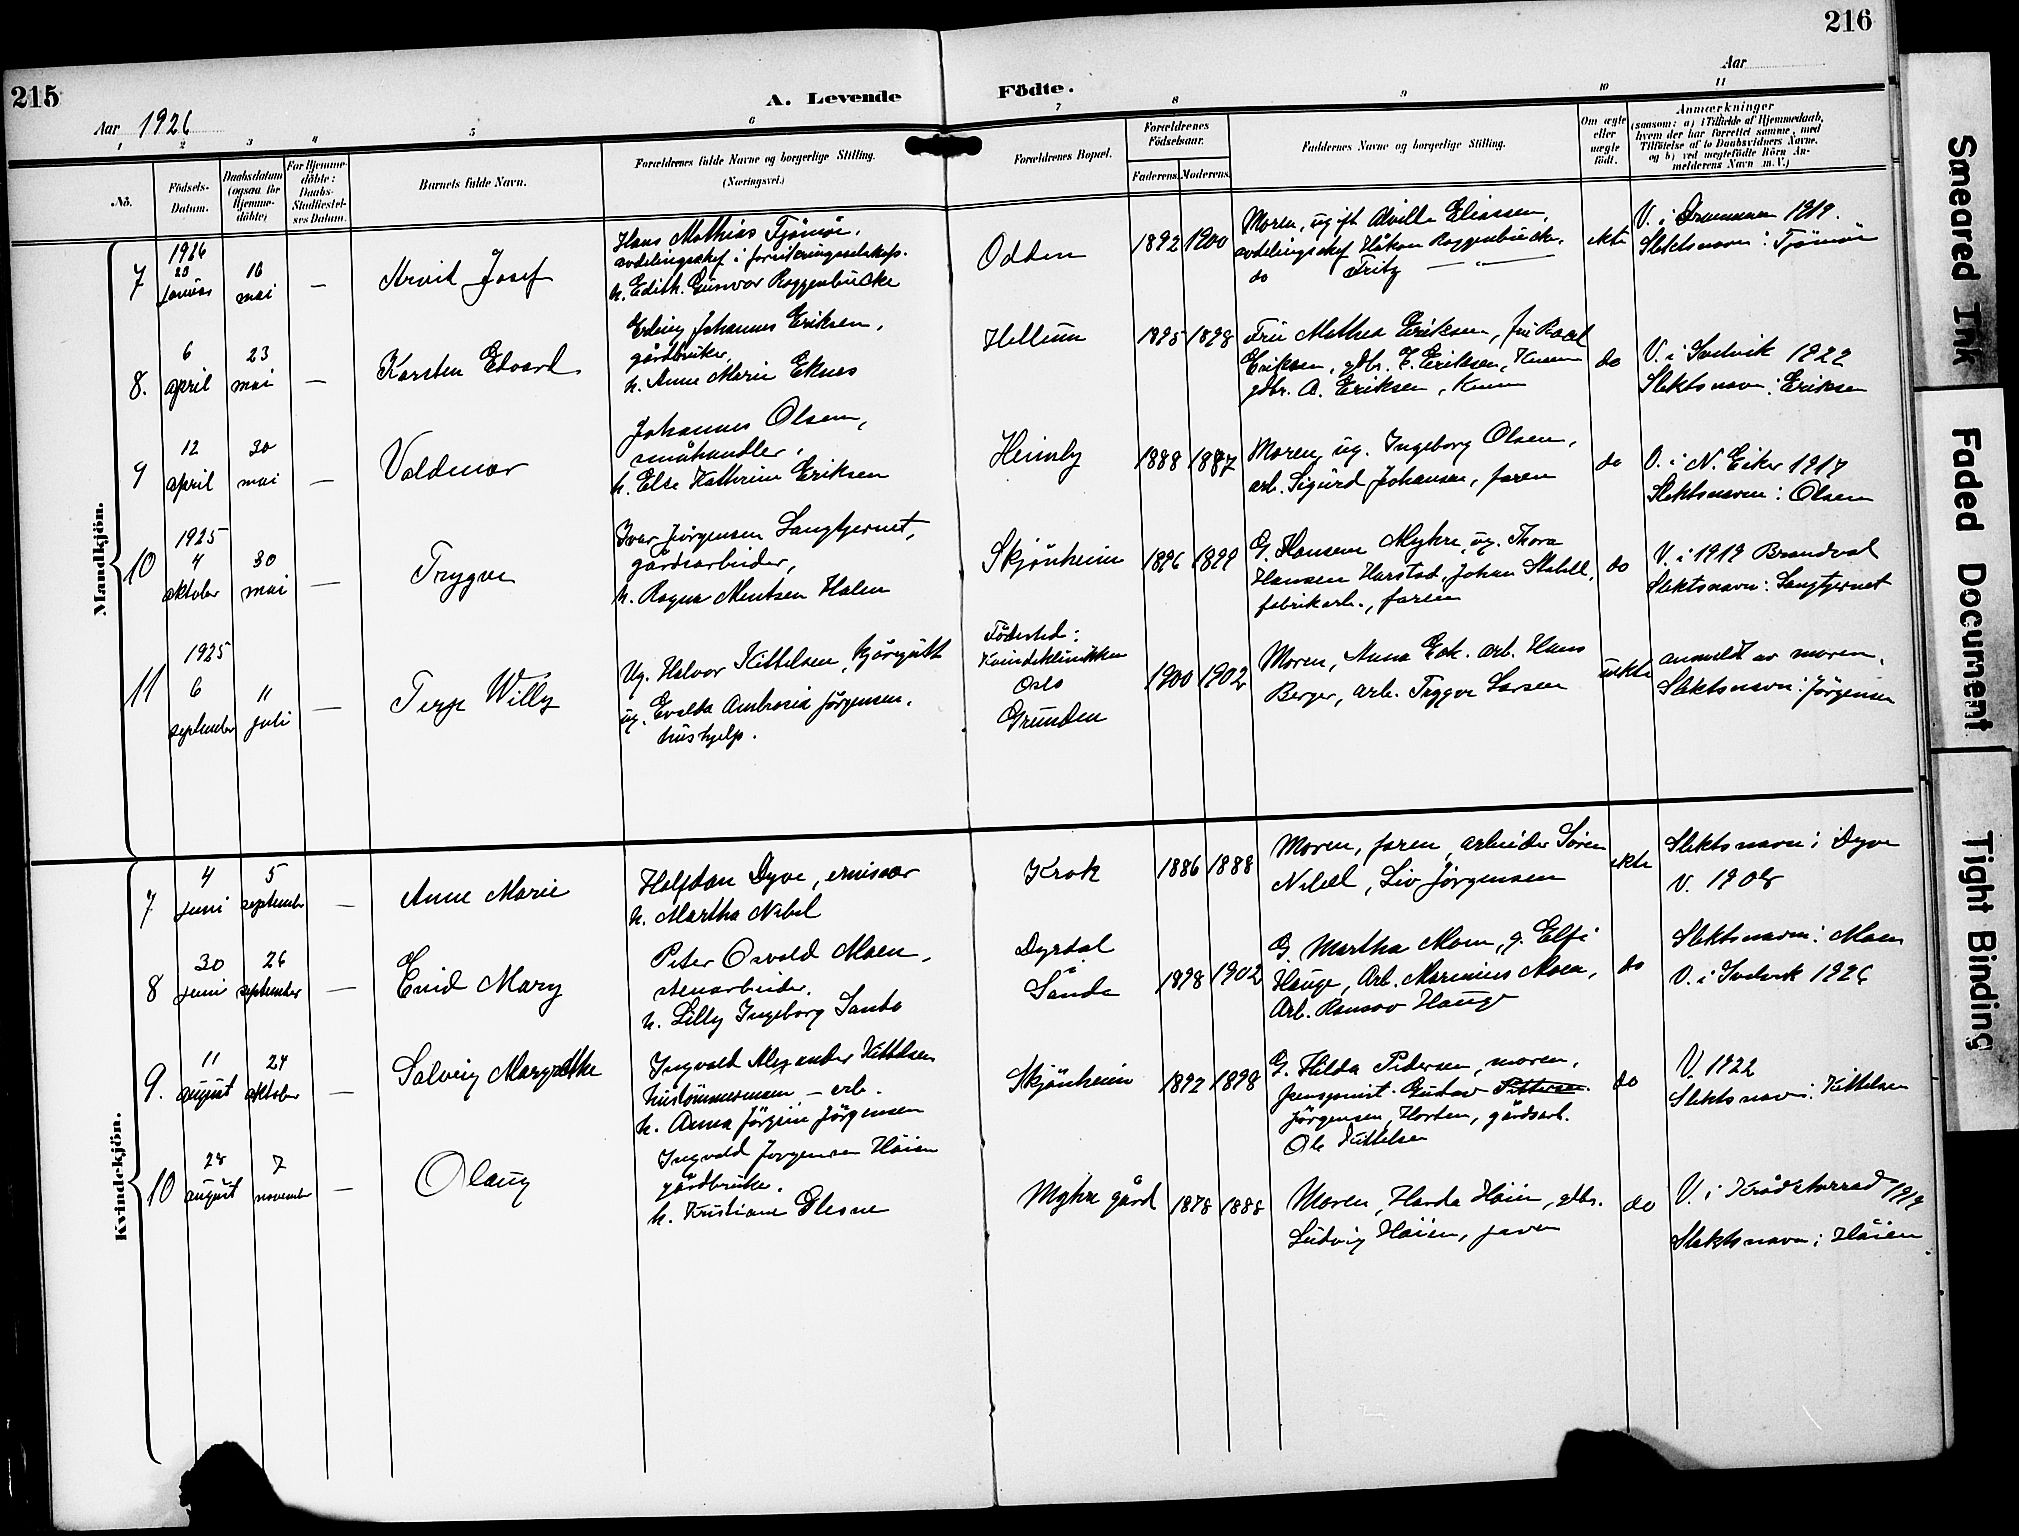 215
216
A. Levende
Födte.
Aar 1926
Aar
1
2
3
4
5
6
7
8
9
10
11
No.
Födsels-
Datum.
Daabsdatum
(ogsaa for
Hjemme-
döbte)
For Hjemme-
döbte:
Daabs-
Stadfæstel-
ses Datum.
Barnets fulde Navn.
Forældrenes fulde Navne og borgerlige Stilling.
(Næringsvei.)
Forældrenes Bopæl.
Forældrenes
Födselsaar.
Faderens.
Moderens.
Faddernes Navne og borgerlige Stilling.
Om ægte
eller
uægte
födt.
Anmærkninger
(saasom: a) i Tilfælde af Hjemmedaab,
hvem der har forrettet samme, med
Tilföielse af to Daabsvidners Navne,
og b) ved uegtefödte Börn An-
melderens Navn m. V.)
Mandkjön.
7
1926
20
januar
16
mai
—
Arvid Josef
Hans Mathias Tjömöe,
avdelingschef i forsikringsselskap.
h. Edith Gunvor Roggenbucke
Odden
1892
1900
Moren, ugift Alvilla Eliassen,
avdelingschef Håkon Roggenbucke,
do Fritz — " —
ekte
V. i Drammen 1919.
Slektsnavn: Tjömöe
8.
6
april
23
mai
—
Karsten Edvard
Erling Johannes Eriksen,
gårdbruker,
h. Anne Marie Eknes
Hellum
1895
1898
Fru Mathea Eriksen, fru
Eriksen, gdbr. E. Eriksen,
gdbr. A. Eriksen,
do
V. i Svelvik 1922
Slektsnavn: Eriksen
9
12
april
30
mai
—
Valdemar
Johannes Olsen,
småhandler,
h. Else Kathrine Eriksen
Heimly
1888
1887
Moren, ug. Ingeborg Olsen,
arb. Sigurd Johansen, faren
do
V. i N. Eiker 1917
Slektsnavn: Olsen
10
1925
4
oktober
30
mai
—
Trygve
Ivar Jörgensen Langtjernet,
gårdsarbeider,
h. Ragna Mentsen Holen
Skjönheim
1896
1899
G. Hansen Myhre, ug. Thora
Hansen Harstad, Johan
fabrikarb., faren
do
V. i 1919 Brandval
Slektsnavn: Langtjernet
11
1925
6
september
11
juli
—
Terje Willy
Ug. Halvor Kittelsen, kjöregutt
ug. Evelda Ambrosia Jörgensen,
hushjelp.
Födested:
Kvindeklinikken
Oslo
Grunden
1900
1902
Moren, Anna Eek. arb. Hans
Berger, arb. Trygve Larsen
uekte
anmeldt av moren.
Slektsnavn: Jörgensen
Kvindekjön.
7
4
juni
5
september
—
Anne Marie
Halfdan Dyve, emissær
h. Martha Nibel
Krok
1886
1888
Moren, faren, arbeider Sören
Nibel, Liv Jörgensen
ekte
Slektsnavn: Dyve
V. 1908
8
30
juni
26
september
—
Enid Mary
Peter Osvald Moen,
stenarbeider.
h. Lilly Ingeborg Sande
Dyrdal
Sande
1898
1902
G. Martha Moen, g. Elfi
Hauge, Arb. Marinius Moen,
Arb. Hauge
do
Slektsnavn: Moen
V. i Svelvik 1926
9.
11
august
24
oktober
—
Solveig Margrethe
Ingvald Alexander Kittelsen
hustömmermann – arb.
h. Anna Jörgine Jörgensen
Skjönheim
1892
1898
G. Hilda Pedersen, moren,
pensjonist. Gustav Pettersen
Jörgensen, Horten, gårdsarb.
Ole Kittelsen
do
V. 1922
Slektsnavn: Kittelsen
10
28
august
7
november
—
Olaug
Ingvald Jörgensen Höien
gårdbruker.
h. Kristiane Glesne
Myhre gård
1878
1888
Moren, Harda Höien, gdbr.
Ludvig Höien, faren
do
V. i Krödsherred 1919
Slektsnavn: Höien
Smeared Ink
Faded Document
Tight Binding